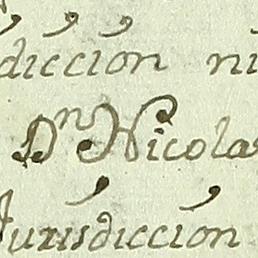 diccion ni
Dn Nicolas
Jurisdiccion